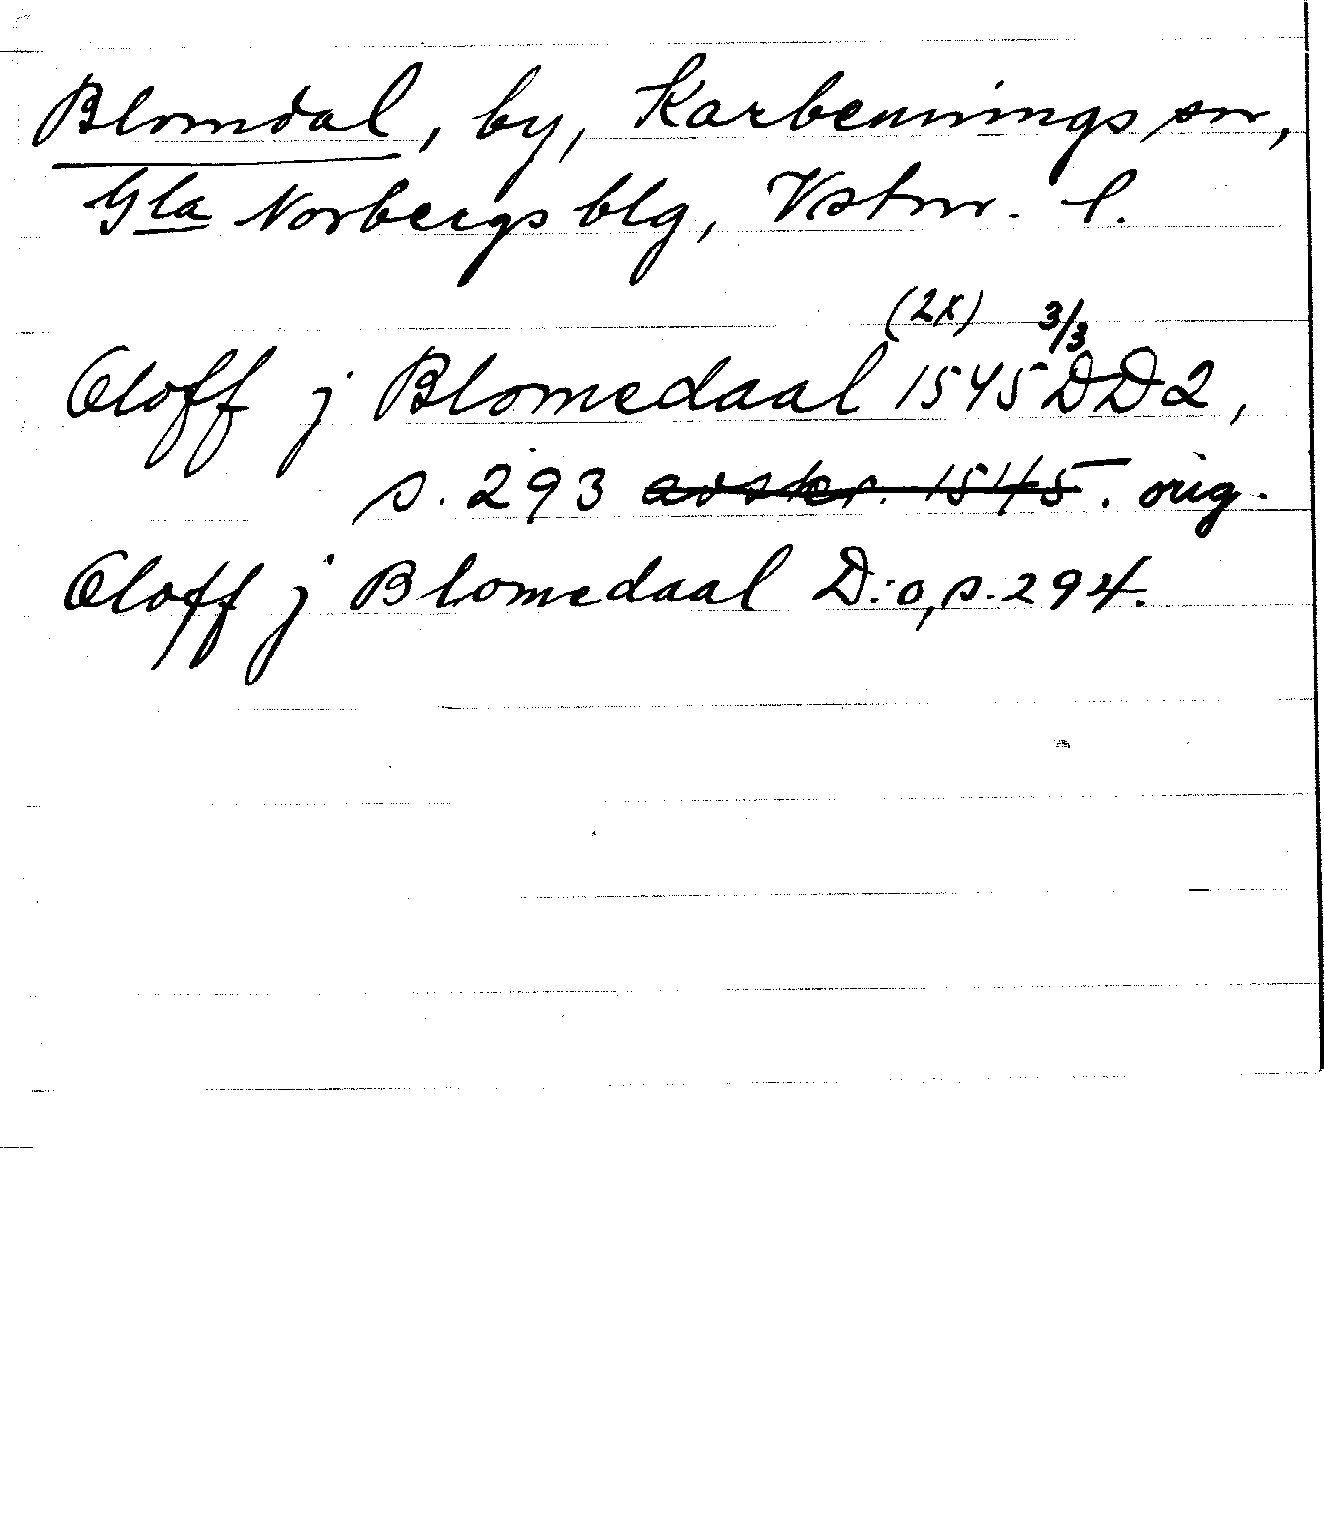 Blomdal, by, Karbennings sn,
Gla Norbergs blg, Vstm. l.
(2x) 3/3
Oloff j Blomedaal 1545 DD2,
s. 293 avskr. 1545. orig.
Oloff j Blomedaal D:o, s. 294.